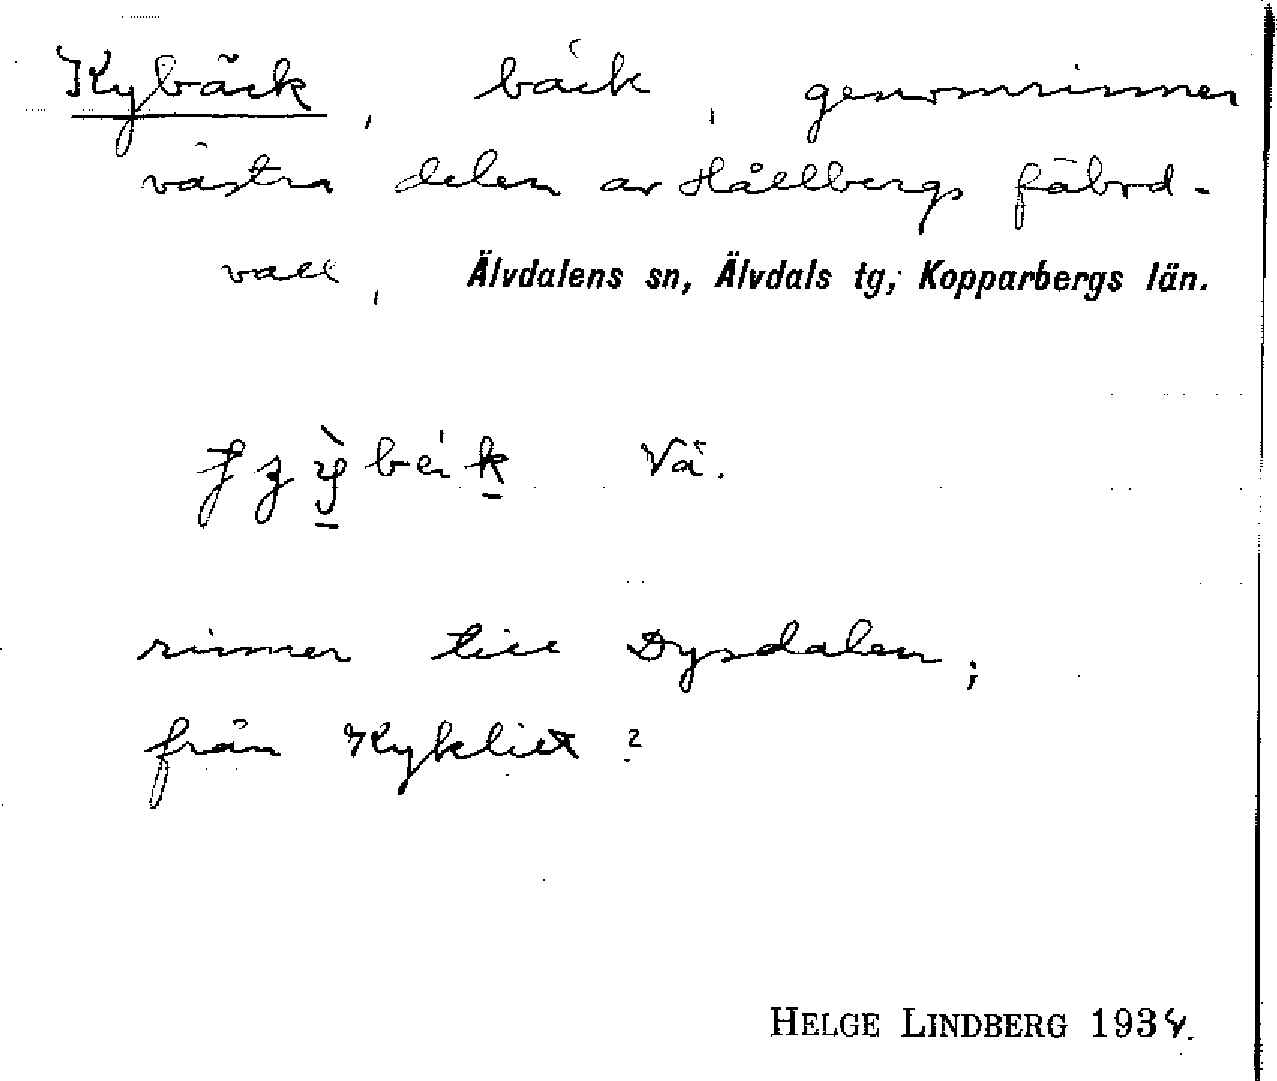 Kybäck, bäck, genomrinner
västra delen av Hållbergs fäbod-
vall, Älvdalens sn, Älvdals tg, Kopparbergs län.
Vä.
rinner till Dysdalen;
från Kykliet?
HELGE LINDBERG 1934.